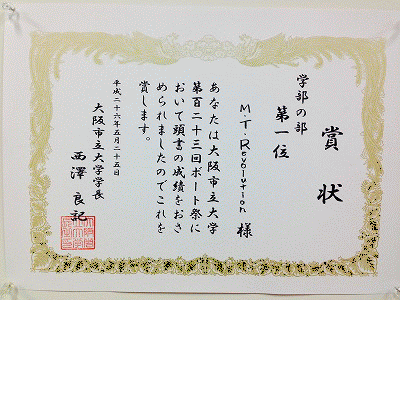 賞状
学部の部
第一位
M.T.Revolution 様
あなたは大阪市立大学
第百二十三回ボート祭に
おいて頭書の成績をおさ
められましたのでこれを
賞します。
平成二十六年五月二十五日
大阪市立大学学長
西澤良記